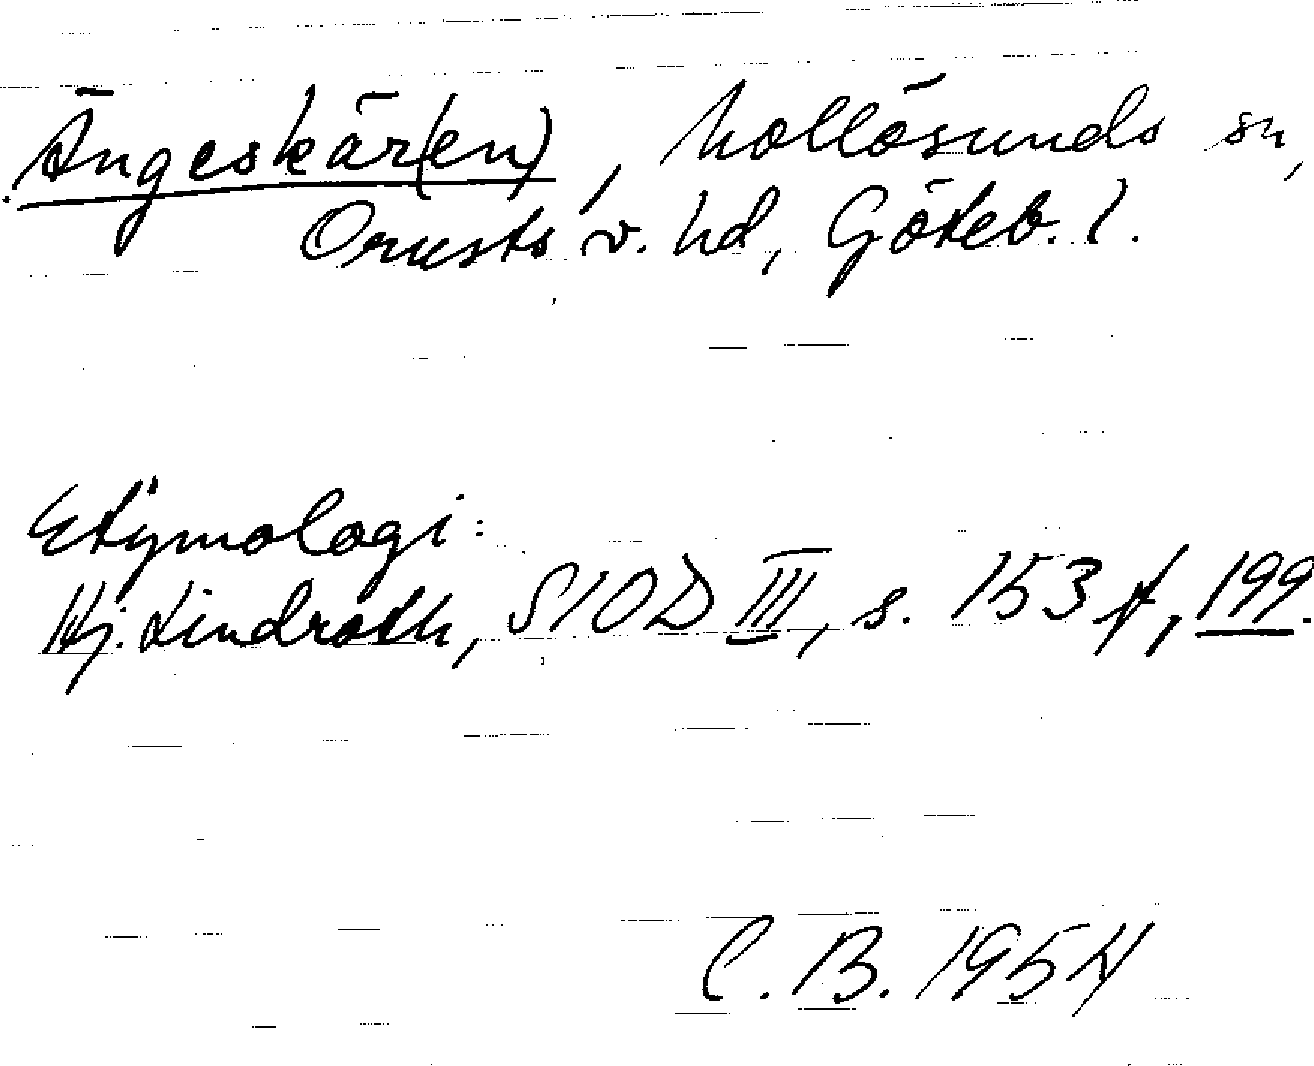 Ängeskär(en), Mollösunds sn,
Orusts v. hd, Göteb. l.
Etymologi:
Hj. Lindroth, SIOD III, s. 153 f, 199.
C. B. 1954